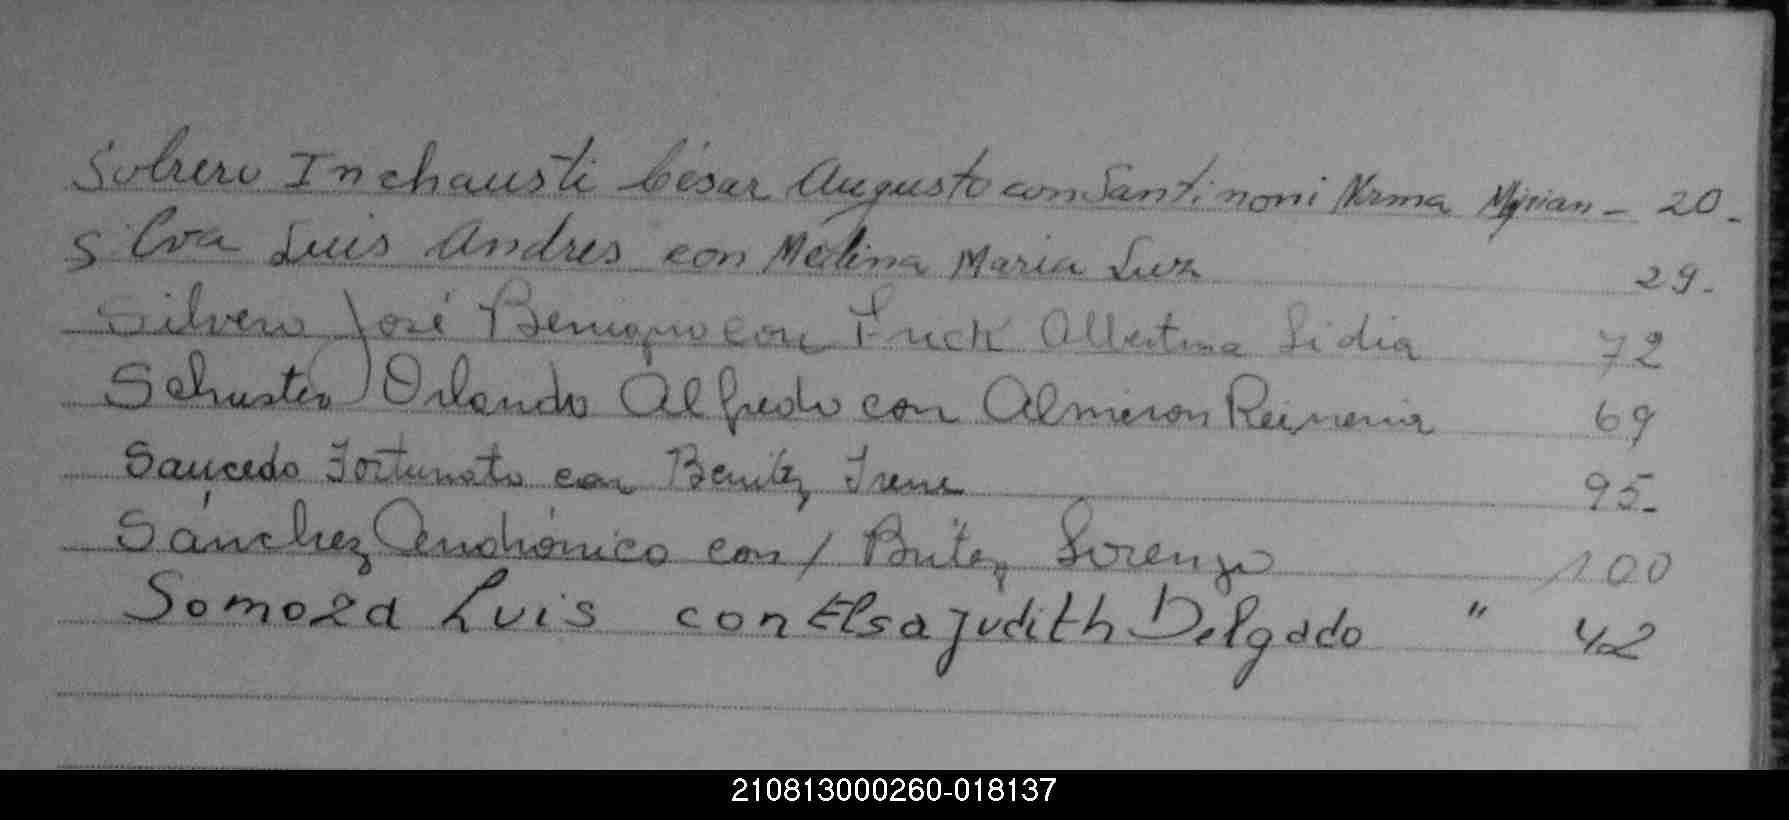 Sobrero Inchausti César Augusto con Santinoni Nrma Myrian - 20.
Silva Luis Andres con Medina Maria Luz 29.
Silvero José Benigno con Frick Albertina Lidia 72
Schuster Orlando Alfredo con Almeron Reineria 69
Saucedo Fortunato con Benitez Irene 95.
Sánchez Andrónico con / Britez Lorenza 100
Somoza Luis con Elsa Judith Delgado " 42
210813000260-018137